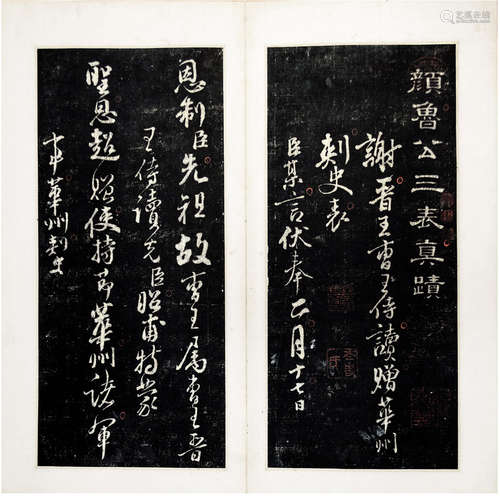 顏魯公三表真蹟
謝晉王曹王侍讀贈華州
刺史表
臣某言伏奉二月十七日
恩制臣先祖故曹王屬曹王晉
王侍讀先臣昭甫特蒙
聖恩超贈使持節華州諸軍
事華州刺史